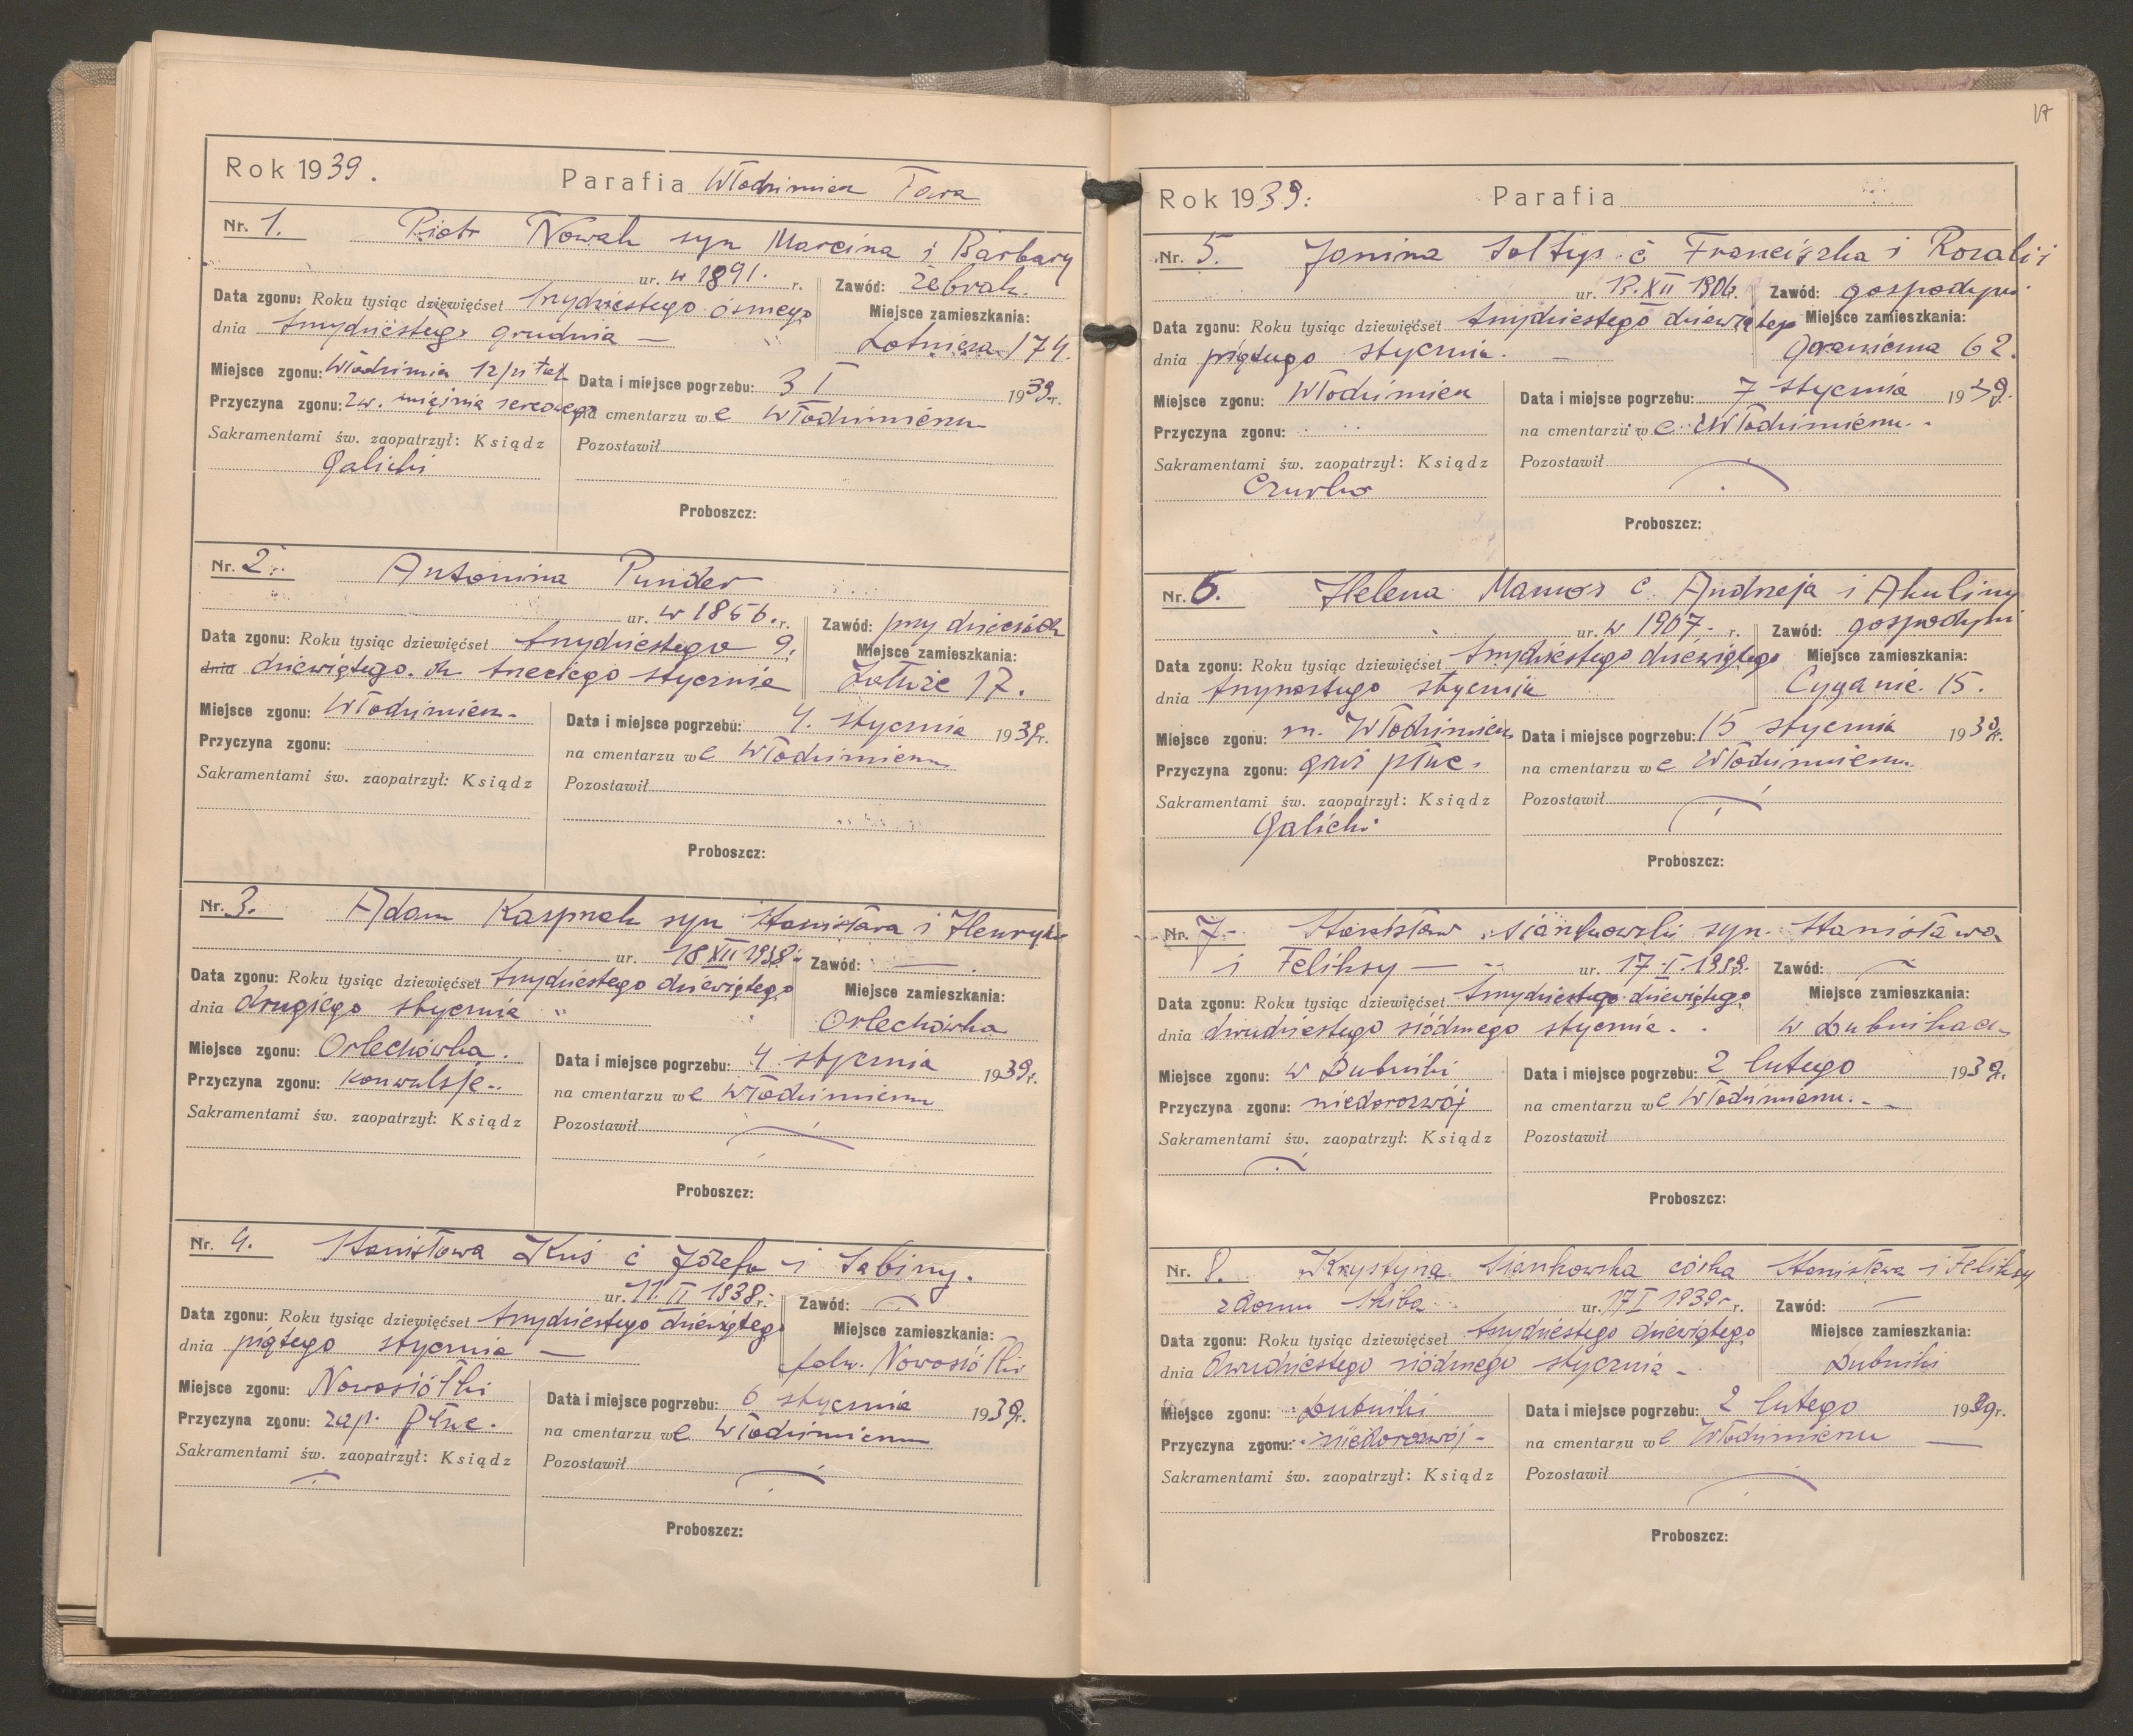 Rok 1939.
Parafia Włodzimierz Fara
Nr. 1. Piotr Nowak syn Marcina i Barbary
ur. w 1891. r. Zawód: żebrak.
Data zgonu: Roku tysiąc dziewięćset trzydziestego ósmego
Miejsce zamieszkania:
dnia trzydziestego grudnia —
Lotnicza 174.
Miejsce zgonu: Włodzimierz
Data i miejsce pogrzebu: 3 I 1939r.
Przyczyna zgonu: zw. mięśnia sercowego
na cmentarzu we Włodzimierzu
Sakramentami św. zaopatrzył: Ksiądz
Galicki
Pozostawił
Proboszcz:
Nr. 2. Antonina Punder
ur. w 1856. r. Zawód: przy dzieciach
Data zgonu: Roku tysiąc dziewięćset trzydziestego 9.
Miejsce zamieszkania:
dnia dziewiątego. dn trzeciego stycznia
17.
Miejsce zgonu: Włodzimierz.
Data i miejsce pogrzebu: 4. stycznia 1939r.
Przyczyna zgonu:
na cmentarzu we Włodzimierzu
Sakramentami św. zaopatrzył: Ksiądz
Pozostawił
Proboszcz:
Nr. 3. Adam Kasprzak syn Stanisława i Henryki
ur. 18 XII 1938. Zawód: —
Data zgonu: Roku tysiąc dziewięćset trzydziestego dziewiątego
Miejsce zamieszkania:
dnia drugiego stycznia "
Orlechówka
Miejsce zgonu: Orlechówka.
Data i miejsce pogrzebu: 4 stycznia 1939r.
Przyczyna zgonu: konwulsje.
na cmentarzu we Włodzimierzu
Sakramentami św. zaopatrzył: Ksiądz
Pozostawił
Proboszcz:
Nr. 4. Stanisława Kuś c Józefa i Sabiny.
ur. 11. II 1938 r. Zawód: —
Data zgonu: Roku tysiąc dziewięćset trzydziestego dziewiątego
Miejsce zamieszkania:
dnia piątego stycznia —
folw. Nowosiółki
Miejsce zgonu: Nowosiółki
Data i miejsce pogrzebu: 6 stycznia 1939r.
Przyczyna zgonu: zap. płuc.
na cmentarzu we Włodzimierzu
Sakramentami św. zaopatrzył: Ksiądz
Pozostawił
Proboszcz:
17
Rok 1939.
Parafia
Nr. 5. Janina Sołtys c Franciszka i Rozalii
ur. 13. XII 1906. Zawód: gospodyni
Data zgonu: Roku tysiąc dziewięćset trzydziestego dziewiątego
Miejsce zamieszkania:
dnia piątego stycznia. —
Graniczna 62.
Miejsce zgonu: Włodzimierz
Data i miejsce pogrzebu: 7 stycznia 1939.
Przyczyna zgonu:
na cmentarzu we Włodzimierzu.
Sakramentami św. zaopatrzył: Ksiądz
Czurko
Pozostawił
Proboszcz:
Nr. 6. Helena Mamos c. Andrzeja i Akuliny
ur. w 1907. r. Zawód: gospodyni
Data zgonu: Roku tysiąc dziewięćset trzydziestego dziewiątego
Miejsce zamieszkania:
dnia trzynastego stycznia
Cyganie. 15.
Miejsce zgonu: m. Włodzimierz
Data i miejsce pogrzebu: 15 stycznia 1939r.
Przyczyna zgonu: gruź płuc.
na cmentarzu we Włodzimierzu
Sakramentami św. zaopatrzył: Ksiądz
Galicki
Pozostawił
Proboszcz:
Nr. 7. Stanisław Siankowski syn. Stanisława
i Feliksy — ur. 17. I. 1939. Zawód: —
Data zgonu: Roku tysiąc dziewięćset trzydziestego dziewiątego
Miejsce zamieszkania:
dnia dwudziestego siódmego stycznia.
w Dubnikach
Miejsce zgonu: w Dubniki
Data i miejsce pogrzebu: 2 lutego 1939r.
Przyczyna zgonu: niedorozwój
na cmentarzu we Włodzimierzu. -
Sakramentami św. zaopatrzył: Ksiądz
Pozostawił
Proboszcz:
Nr. 8. Krystyna Siankowska córka Stanisława i Feliksy
z domu Skiba ur. 17 I 1939 r. Zawód: —
Data zgonu: Roku tysiąc dziewięćset trzydziestego dziewiątego
Miejsce zamieszkania:
dnia dwudziestego siódmego stycznia -
Dubniki
Miejsce zgonu: Dubniki
Data i miejsce pogrzebu: 2 lutego 1939r.
Przyczyna zgonu: niedorozwój -
na cmentarzu we Włodzimierzu —
Sakramentami św. zaopatrzył: Ksiądz
Pozostawił
Proboszcz: